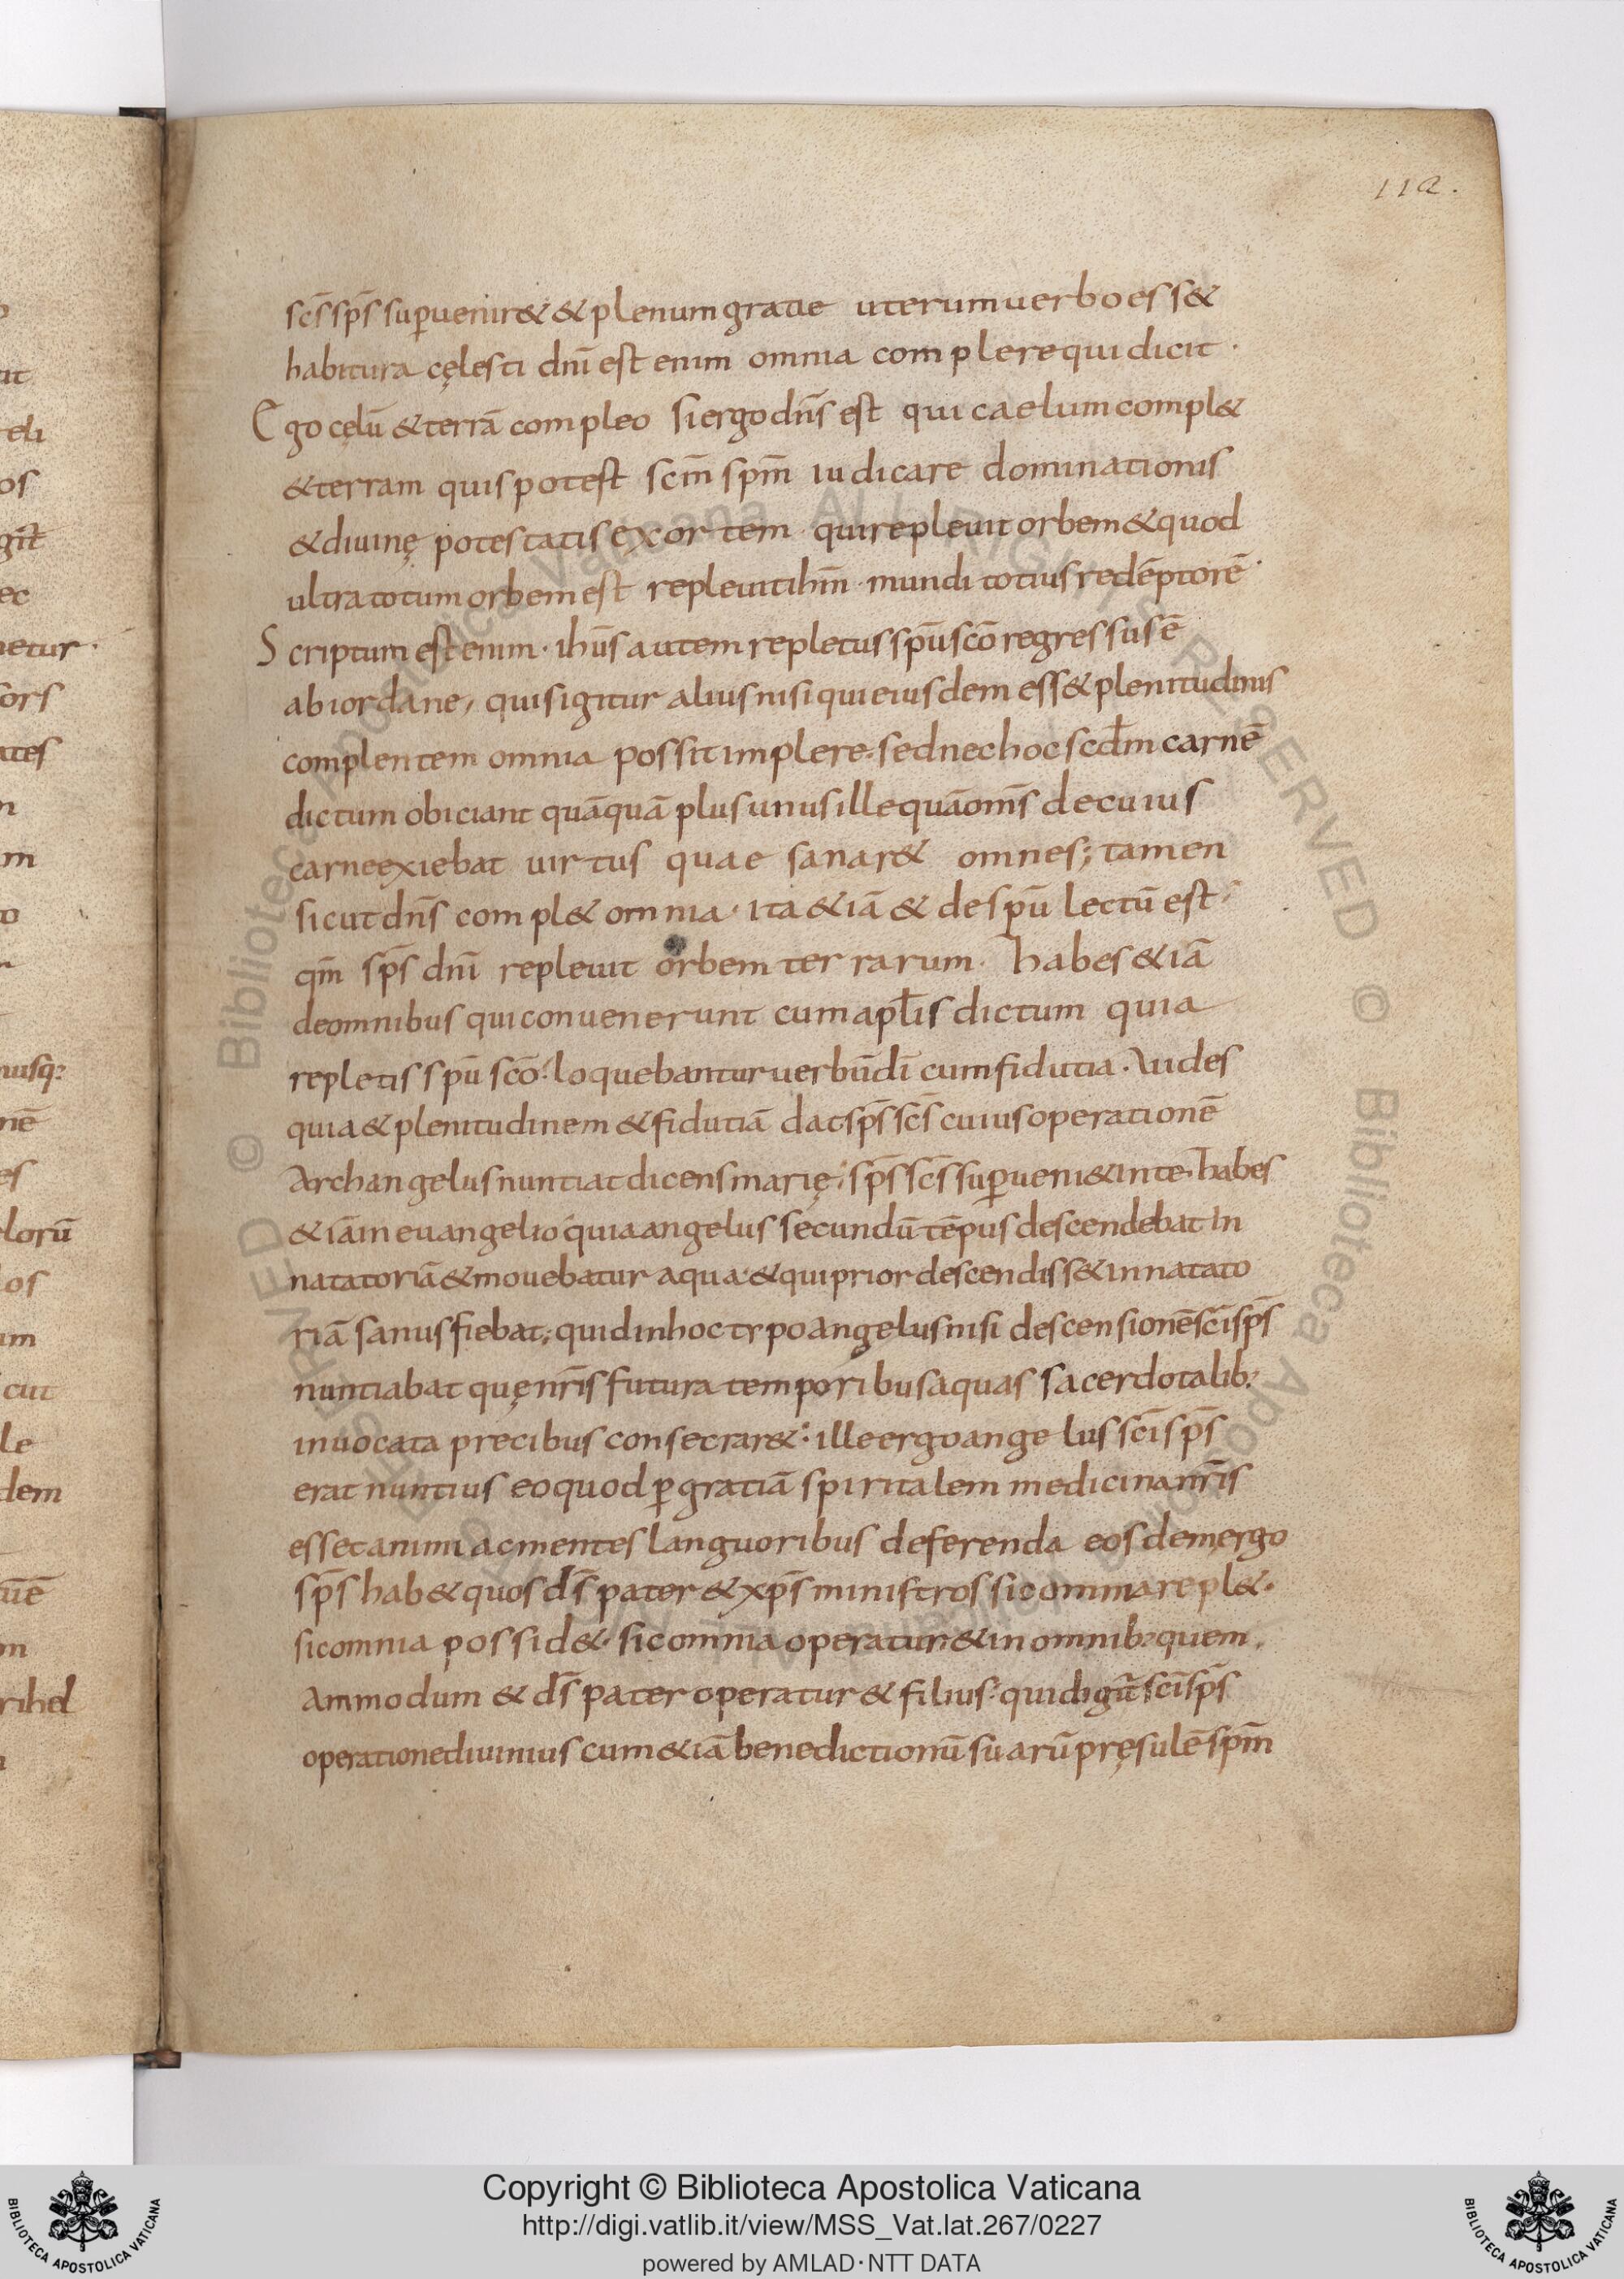 112.
scs̄ sps̄ sup̱uenir& & plenum gratie uterum uerbo ess&
habitura cęlesti dnī est enim omnia complere qui dicit ·
Ego cęlū & terrā compleo si ergo dns̄ est qui caelum compl&
& terram quis potest scm̄ spm̄ iudicare dominationis
& diuinę potestatis exortem · qui repleuit orbem & quod
ultra totum orbem est repleuit ihm̄ · mundi totius redēptorē ·
Scriptum est enim · ihūs autem repletus spū scō regressus ē
ab iordane, quis igitur alius nisi qui eiusdem ess& plenitudinis
complentem omnia possit implere · sed nec hoc scdm̄ carnē
dictum obiciant quāquā plus unus ille quā oms̄ de cuius
carne exiebat uirtus quae sanar& omnes; tamen
sicut dns̄ compl& omnia · ita &iā & de spū lectū est ·
qm̄ sps̄ dnī repleuit orbem terrarum · habes &iā
de omnibus qui conuenerunt cum aplīs dictum quia
repletis spū scō · loquebantur uerbū dī cum fidutia · Vides
quia & plenitudinem & fidutiā dat sps̄ scs̄ cuius operationē
Archangelus nuntiat dicens marię · sps̄ scs̄ sup̱ueni& in te · habes
&iā in euangelio quia angelus secundū tēpus descendebat in
natatoriā & mouebatur aqua · & qui prior descendiss& in natato
riā sanus fiebat; quid in hoc trpo angelus nisi descensionē scī sps̄
nuntiabat quę nrīs futura temporibus aquas sacerdotalib:
inuocata precibus consecrar& · ille ergo angelus scī sps̄
erat nuntius eo quod p̱ gratiā spiritalem medicina nrīs
esset animi ac mentes languoribus deferenda eosdem ergo
sps̄ hab& quos ds̄ pater & xps̄ ministros sic omnia repl& ·
sic omnia possid& · sic omnia operatur & in omnib: quem
Ammodum & ds̄ pater operatur & filius · quid igit̄ scī sps̄
operatione diuinius cum &iā benedictionū suarū pręsulē spm̄
Copyright © Biblioteca Apostolica Vaticana
http://digi.vatlib.it/view/MSS_Vat.lat.267/0227
powered by AMLAD · NTT DATA
BIBLIOTECA APOSTOLICA VATICANA
BIBLIOTECA APOSTOLICA VATICANA